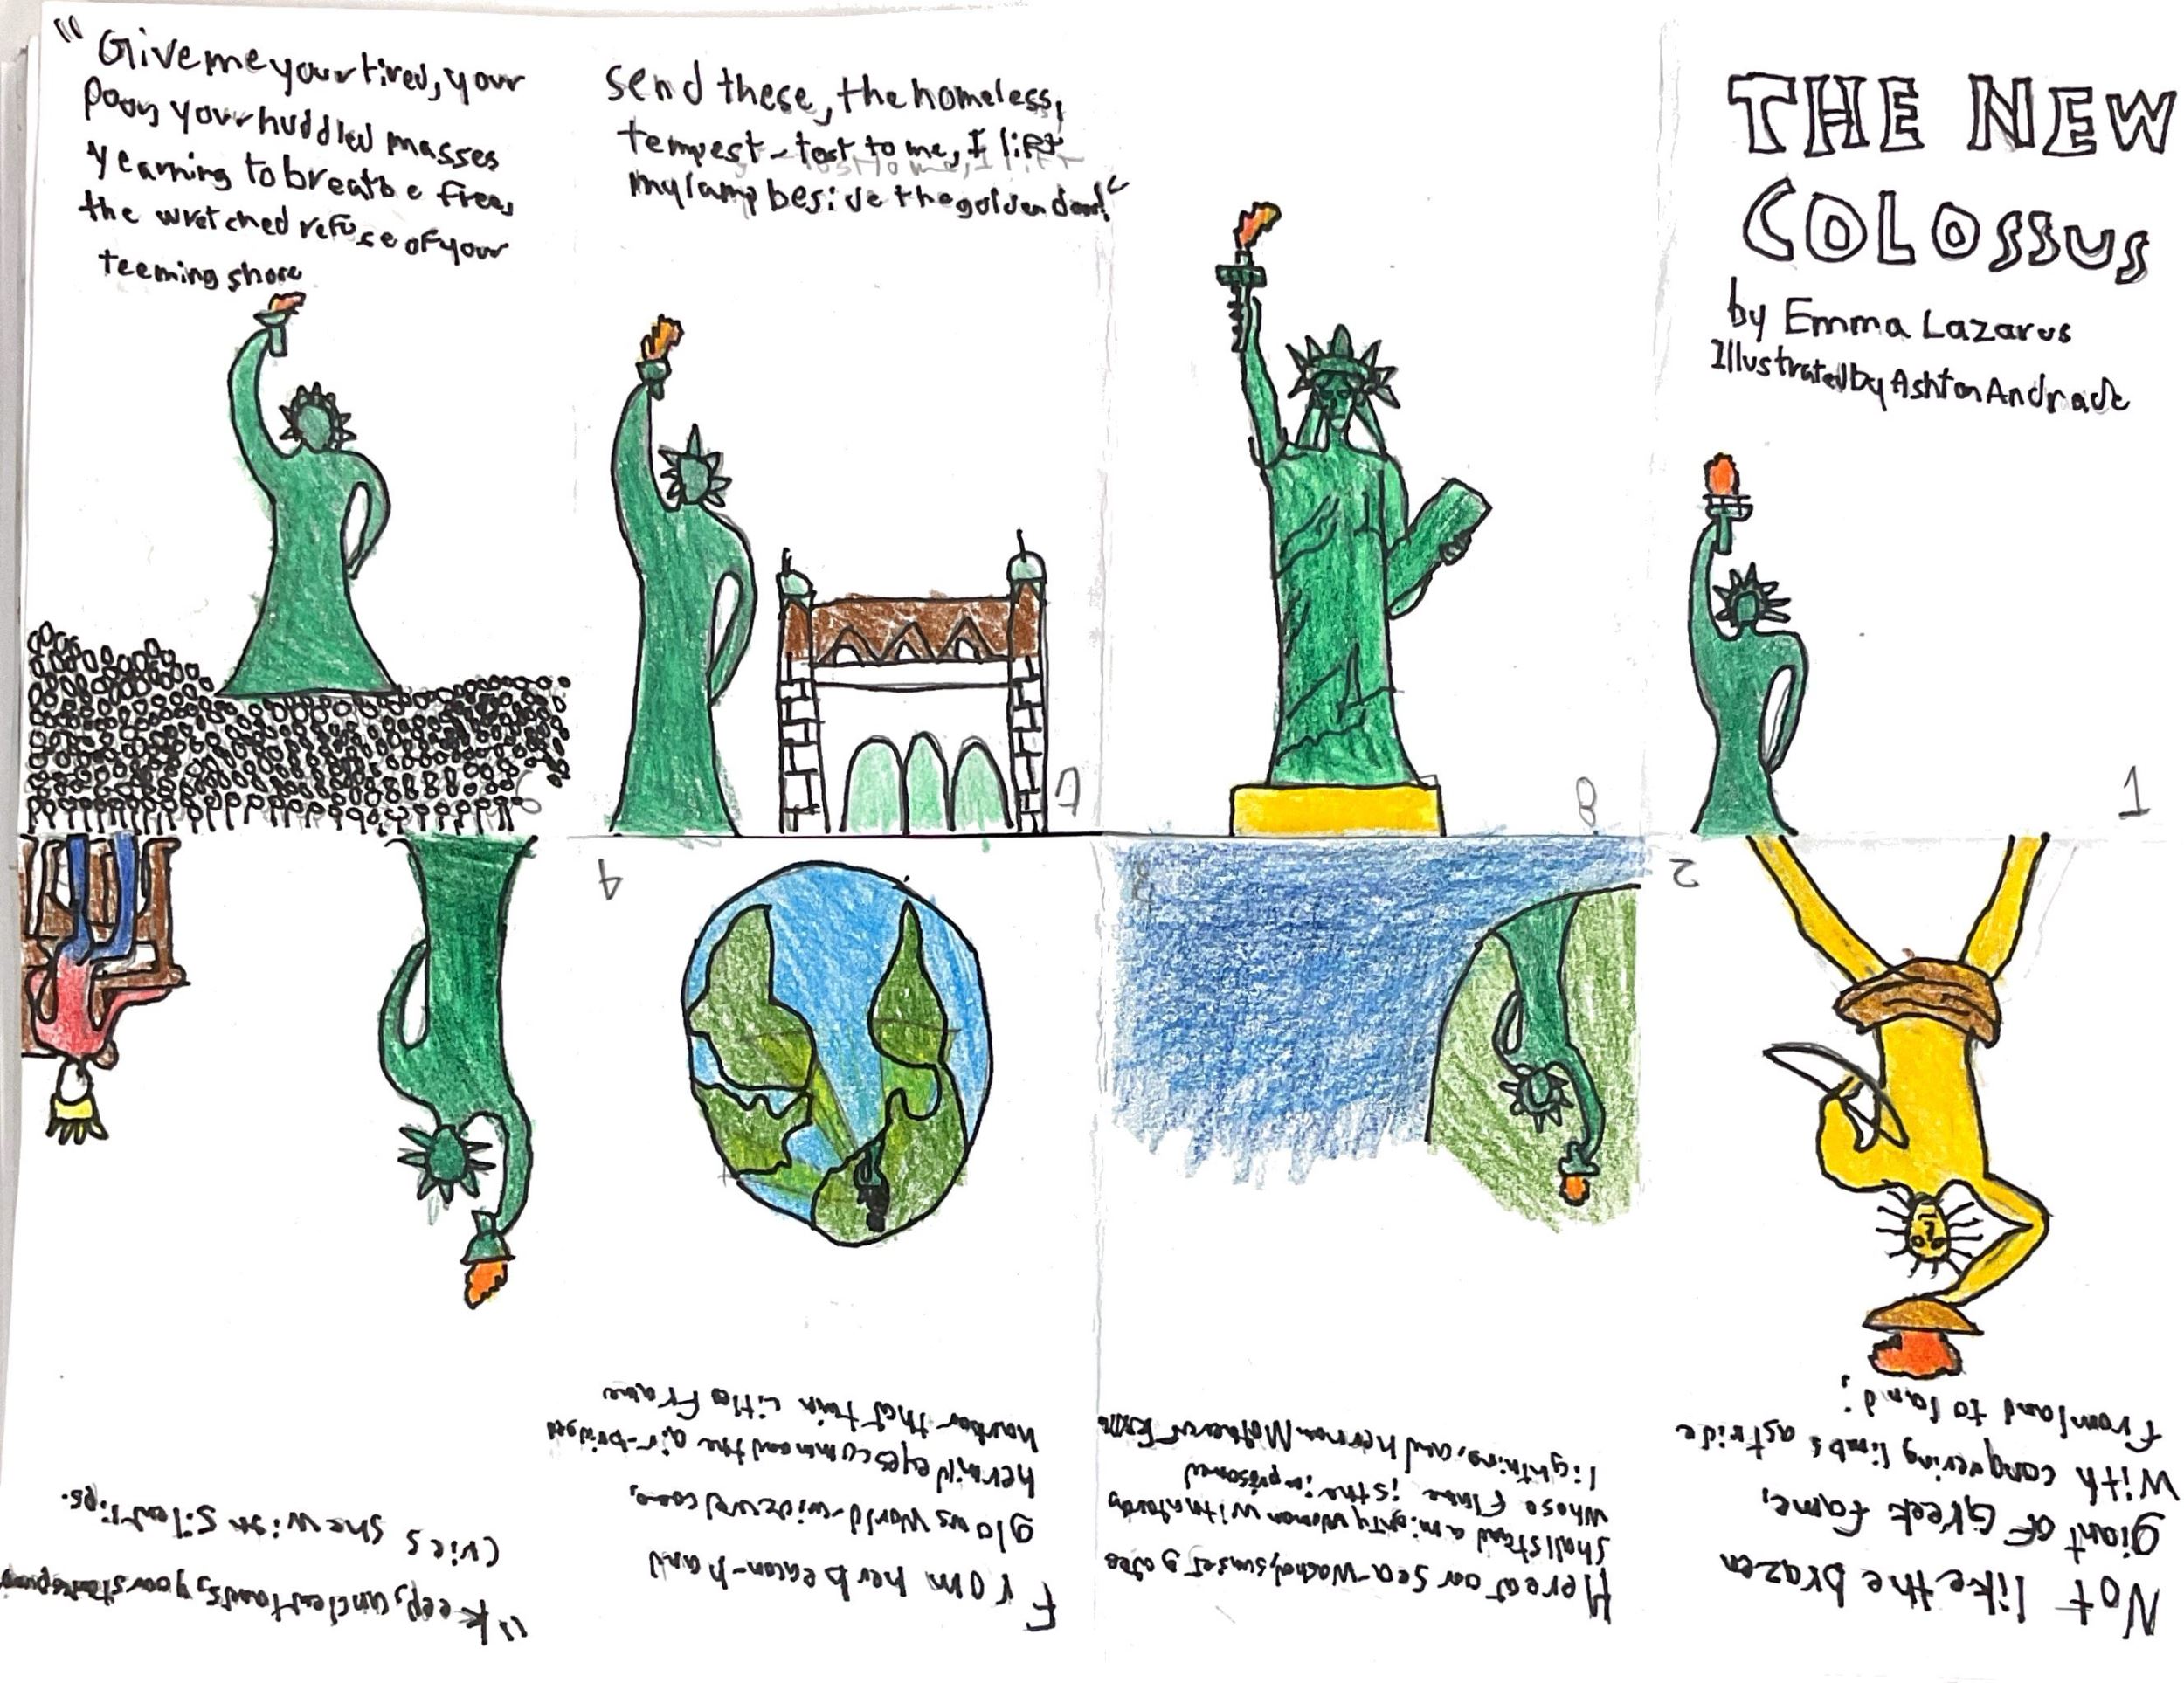 THE NEW
COLOSSUS
by Emma Lazarus
Illustrated by Ashton Andrade
1
Not like the brazen
giant of Greek fame,
With conqering limbs astride
from land to land;
2
Here at our sea-washed, sunset gates
shall stand a mighty woman with a torch
whose flame is the imprisoned
lightning, and her nam Mother of
3
From her beacon-hand
glows world-wide welcome,
her mild eyes command the air-bridged
harbor that twin cities frame
4
"keep, ancient lands, your storied pomp
cries she with silent lips.
"Give me your tired, your
poor, your huddled masses
yearning to breathe free,
the wretched refuse of your
teeming shore
6
send these, the homeless,
tempest-tost to me, I lift
my lamp beside the golden door!"
7
8